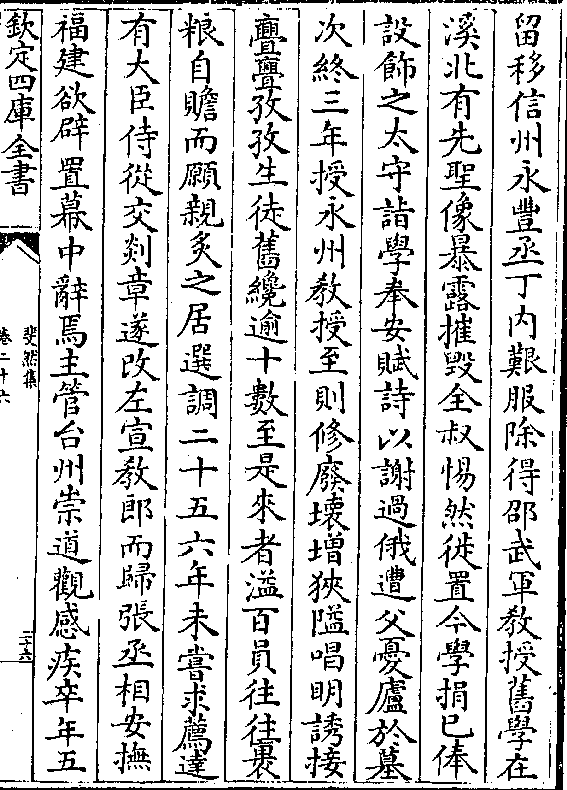 留移信州永豐丞丁内艱服除得邵武軍教授舊學在
溪北有先聖像暴露摧毁全叔惕然徙置今學捐已俸
設飾之太守詣學奉安賦詩以謝過俄遭父憂廬於墓
次終三年授永州教授至則修廢壊増狹隘唱明誘接
亹亹孜孜生徒舊纔逾十數至是來者溢百員往往裹
粮自贍而願親炙之居選調二十五六年未嘗求薦達
有大臣侍從交剡章遂改左宣教郎而歸張丞相安撫
福建欲辟置幕中辭焉主管台州崇道觀感疾卒年五
欽定四庫全書
斐然集
卷二十六
二十六